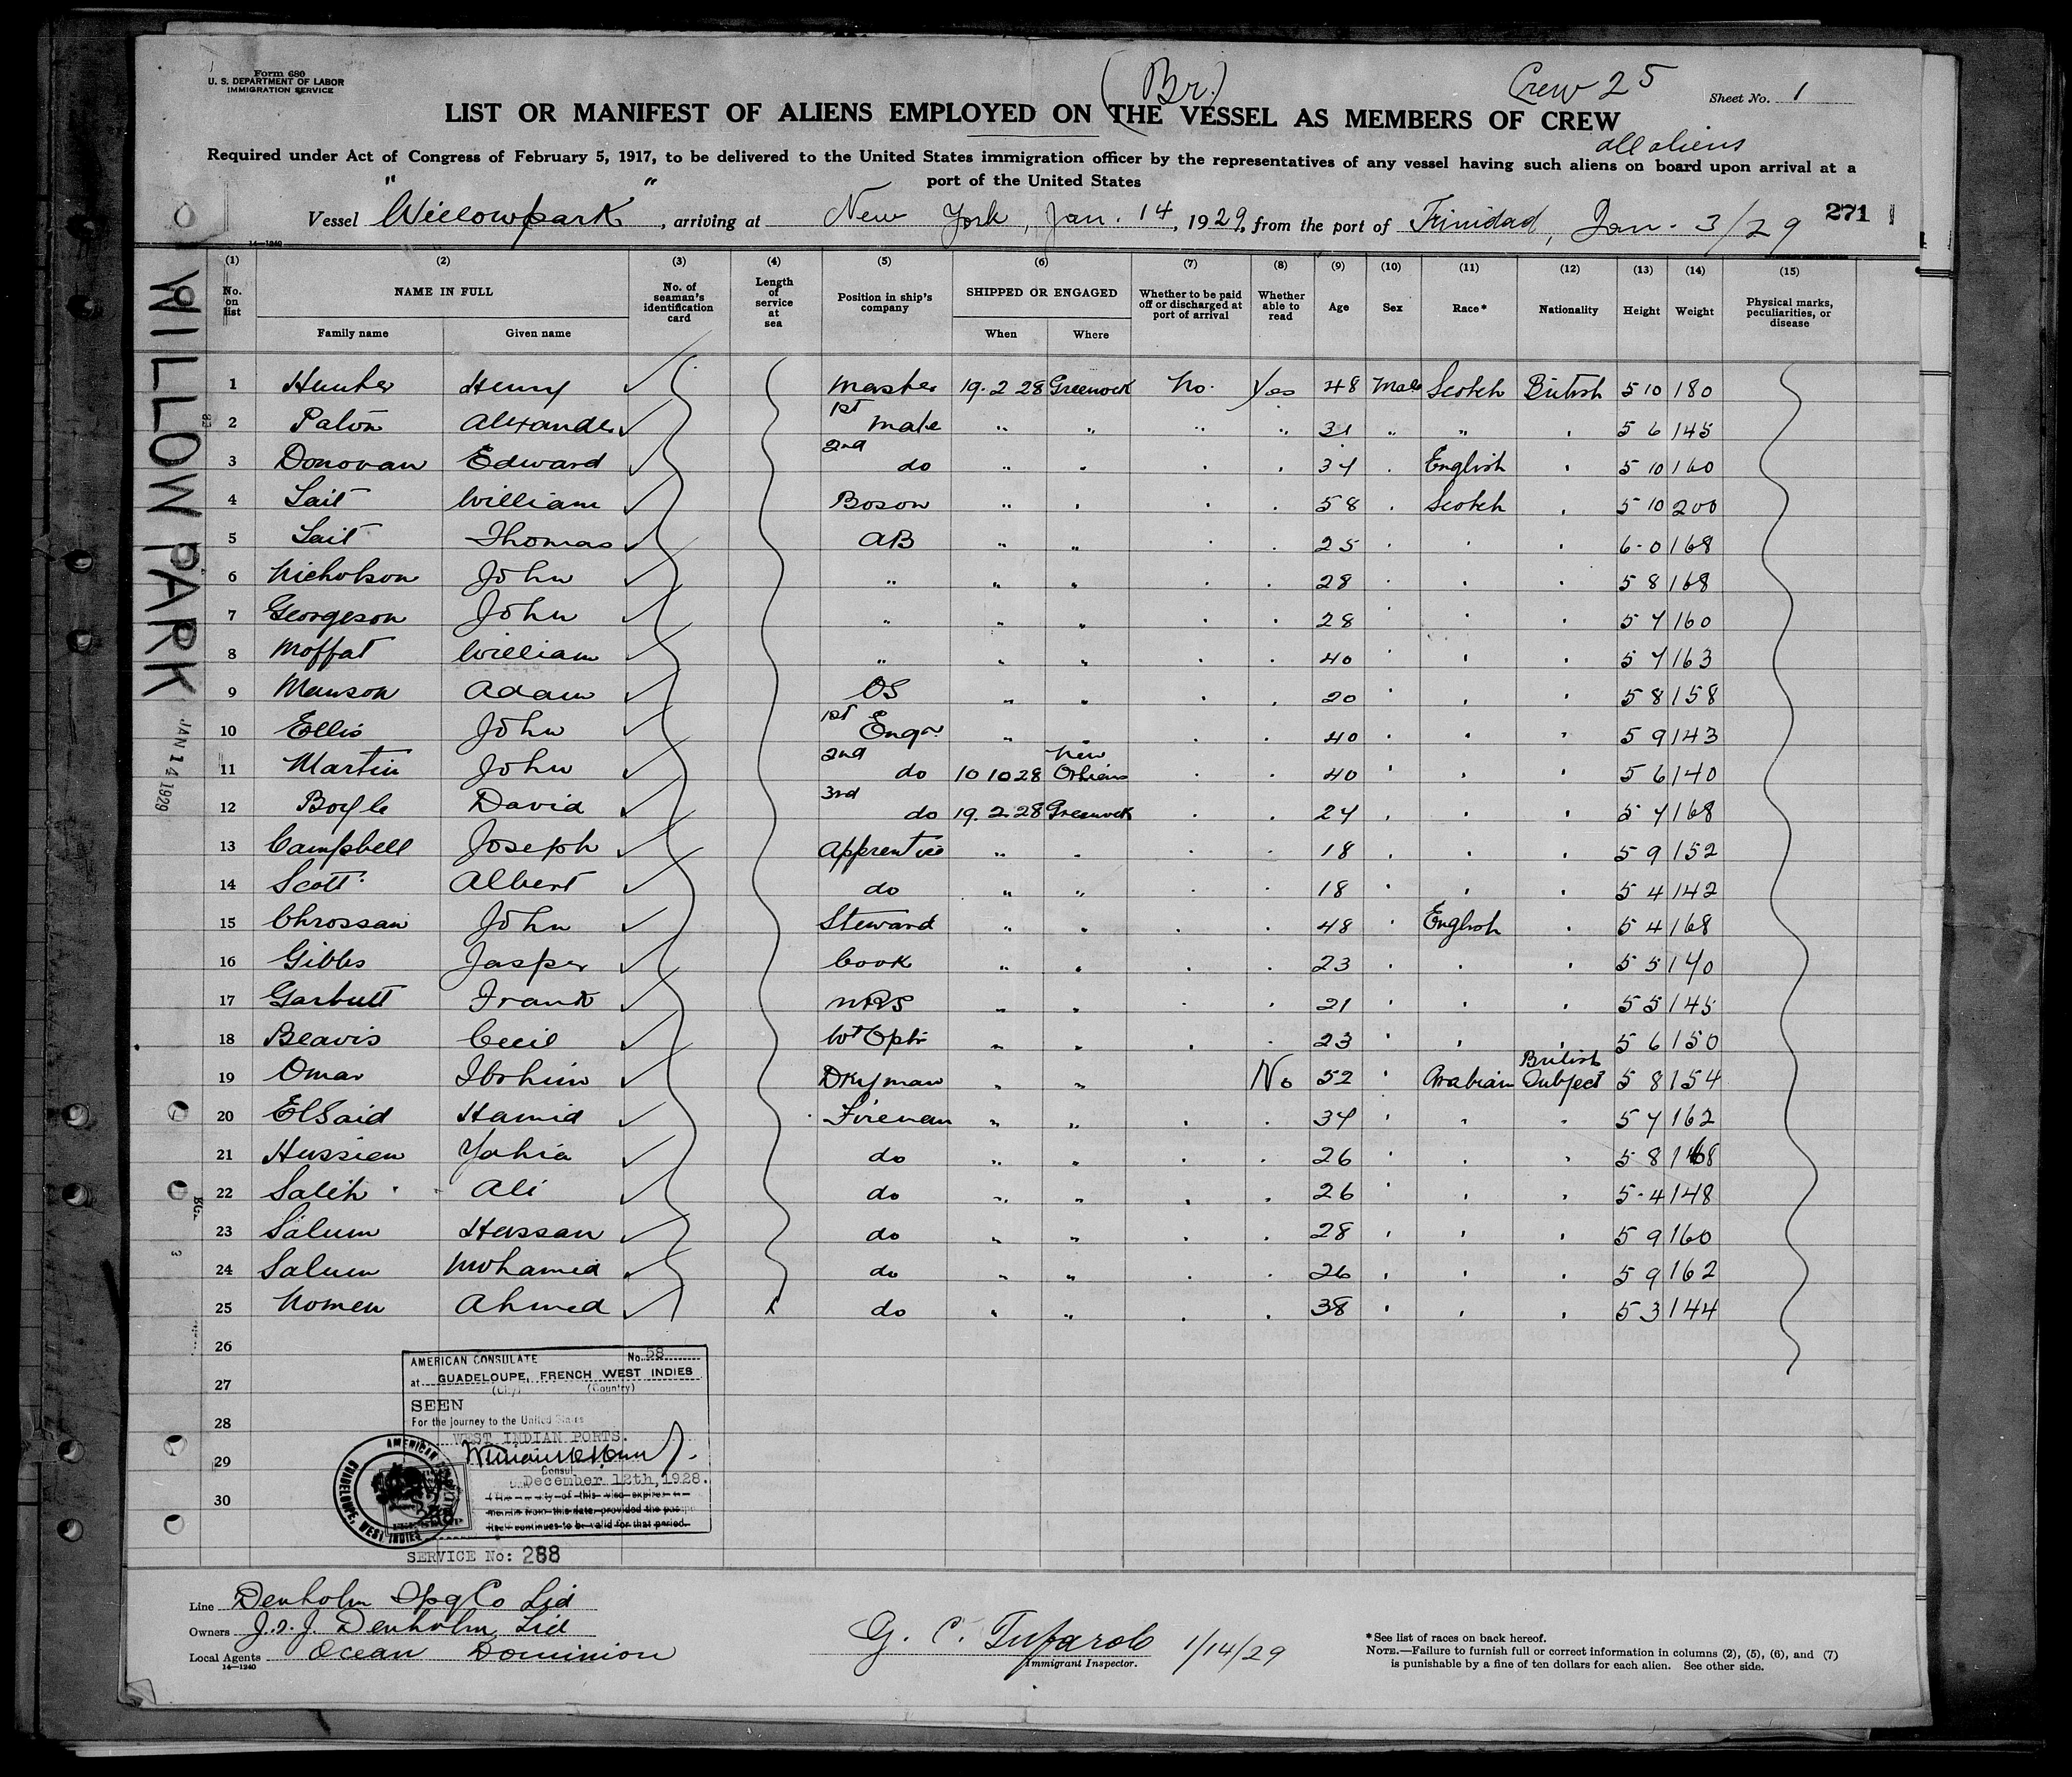 Form 680
U. S. DEPARTMENT OF LABOR
IMMIGRATION SERVICE
(Br.)
Crew 25
Sheet No. 1
LIST OR MANIFEST OF ALIENS EMPLOYED ON THE VESSEL AS MEMBERS OF CREW
all aliens
Required under Act of Congress of February 5, 1917, to be delivered to the United States immigration officer by the representatives of any vessel having such aliens on board upon arrival at a
port of the United States
Vessel "Willowpark", arriving at New York, Jan. 14, 1929, from the port of Trinidad, Jan. 3/29 271
14—1240
WILLOW PARK
JAN 14 1929
(1) (2) (3) (4) (5) (6) (7) (8) (9) (10) (11) (12) (13) (14) (15)
No. on list NAME IN FULL No. of seaman's identification card Length of service at sea Position in ship's company SHIPPED OR ENGAGED Whether to be paid off or discharged at port of arrival Whether able to read Age Sex Race* Nationality Height Weight Physical marks, peculiarities, or disease
Family name Given name When Where
1 Hunter Henry Master 19.2 28 Greenock No. Yes 48 Male Scotch British 5 10 180
2 Paton Alexander 1st Mate " " " " 31 " " " 5 6 145
3 Donovan Edward 2nd do " " " " 34 " English " 5 10 160
4 Lait William Boson " " " " 58 " Scotch " 5 10 200
5 Lait Thomas AB " " " " 25 " " " 6-0 168
6 Nicholson John " " " " " 28 " " " 5 8 168
7 Georgeson John " " " " " 28 " " " 5 7 160
8 Moffat William " " " " " 40 " " " 5 7 163
9 Manson Adam OS " " " " 20 " " " 5 8 158
10 Ellis John 1st Engr " " " " 40 " " " 5 9 143
11 Martin John 2nd do 10 10 28 New Orleans " " 40 " " " 5 6 140
12 Boyle David 3rd do 19.2.28 Greenock " " 24 " " " 5 7 168
13 Campbell Joseph Apprentice " " " " 18 " " " 5 9 152
14 Scott Albert do " " " " 18 " " " 5 4 142
15 Chrossan John Steward " " " " 48 " English " 5 4 168
16 Gibbs Jasper Cook " " " " 23 " " " 5 5 140
17 Garbutt Frank MRS " " " " 21 " " " 5 5 145
18 Beavis Cecil Wt Optr " " " " 23 " " " 5 6 150
19 Omar Ibrhim Dkyman " " No 52 " Arabian British Subject 5 8 154
20 ElSaid Hamid Fireman " " " " 34 " " " 5 7 162
21 Hussien Yahia do " " " " 26 " " " 5 8 168
22 Salih Ali do " " " " 26 " " " 5-4 148
23 Salum Hassan do " " " " 28 " " " 5 9 160
24 Salum Mohamed do " " " " 26 " " " 5 9 162
25 Nomen Ahmed do " " " " 38 " " " 5 3 144
26
27
28
29
30
AMERICAN CONSULATE No. 58
at GUADELOUPE, FRENCH WEST INDIES
(City) (Country)
SEEN
For the journey to the United States
WEST INDIAN PORTS.
Consul
December 12th, 1928.
of this visa expires
months from this date, provided the
itself continues to be valid for that period.
AMERICAN
GUADELOUPE, WEST INDIES
SERVICE No: 288
Line Denholm Spg Co Ltd
Owners J. & J. Denholm Ltd
Local Agents Ocean Dominion
14—1240
G. C. Tufarolo 1/14/29
Immigrant Inspector.
* See list of races on back hereof.
NOTE.—Failure to furnish full or correct information in columns (2), (5), (6), and (7)
is punishable by a fine of ten dollars for each alien. See other side.